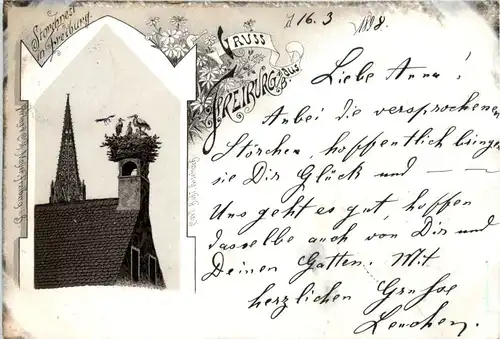 Storchnest
Freiburg.
GRUSS
AUS
FREIBURG
16. 3. 1898.
Liebe Anna!
Anbei die versprochenen
Störchen, hoffentlich bringen
sie Dir Glück und —
Uns geht es gut, hoffen
dasselbe auch von Dir und
Deinen Gatten. Mit
herzlichen Grusse
Lenchen.